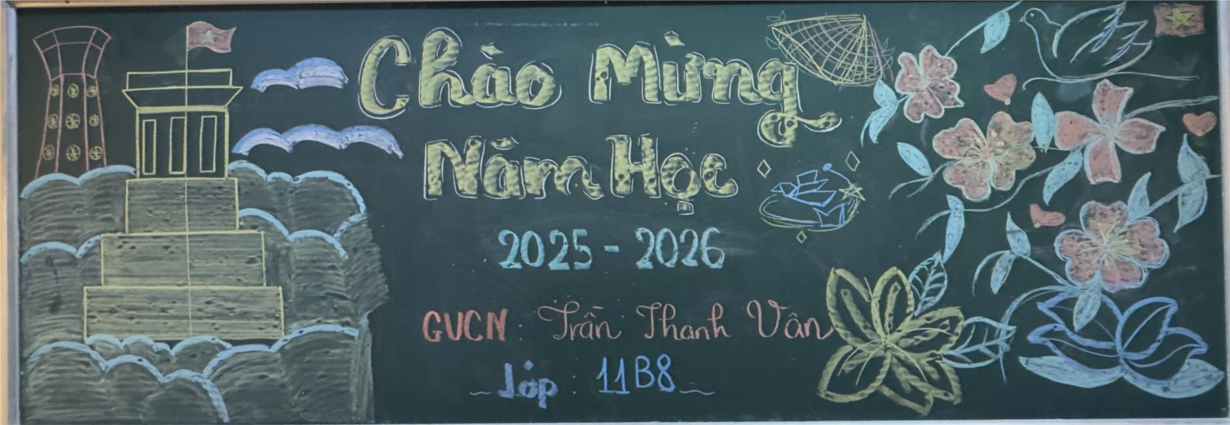 Chào Mừng
Năm Học
2025 - 2026
GVCN: Trần Thanh Vân
Lớp: 11B8